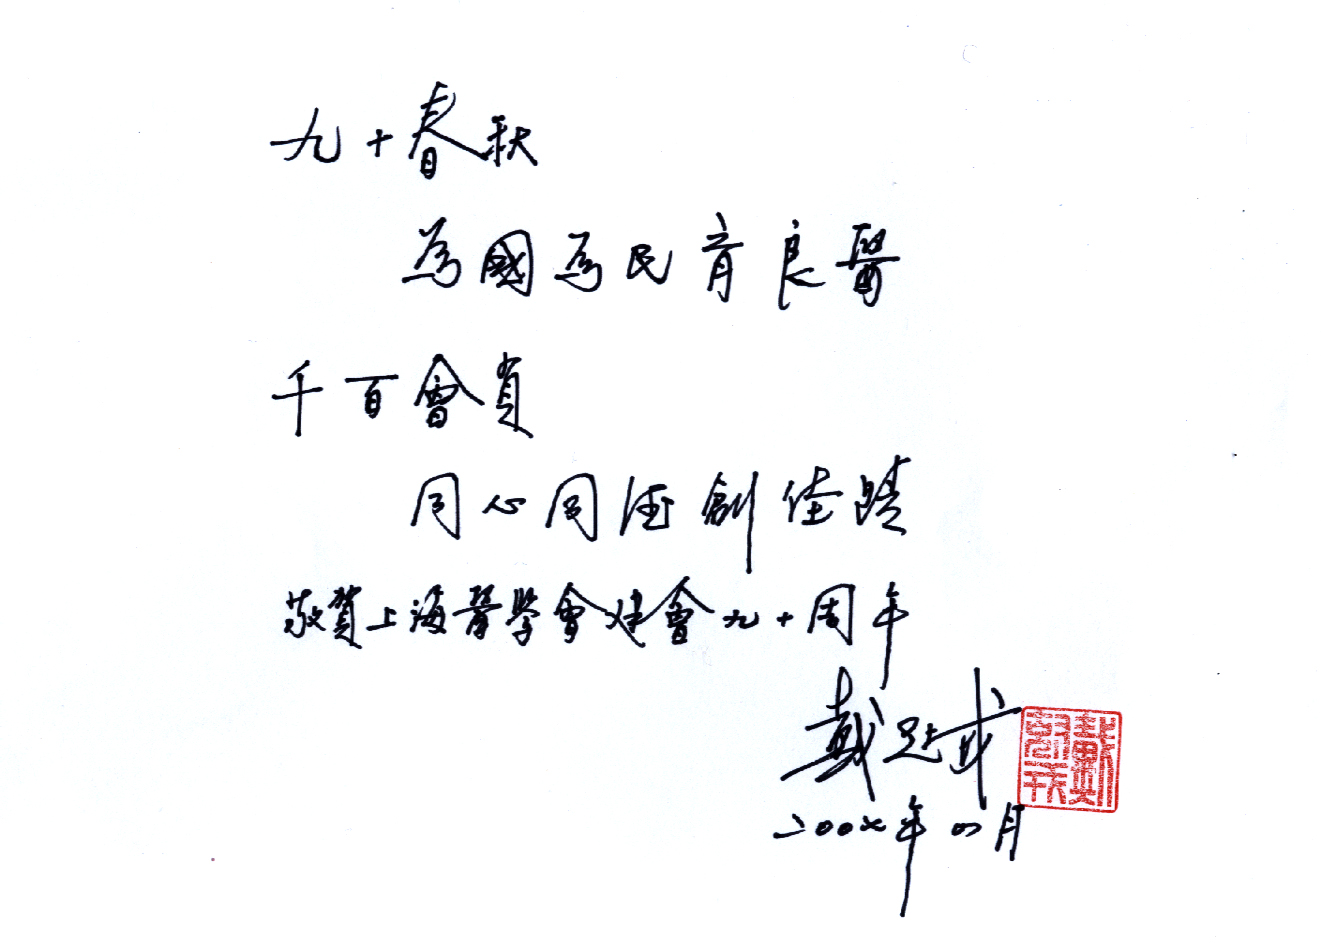 九十春秋
為國為民育良醫
千百會員
同心同德創佳蹟
敬賀上海醫學會建會九十周年
戴尅戎
二00七年四月
戴尅戎